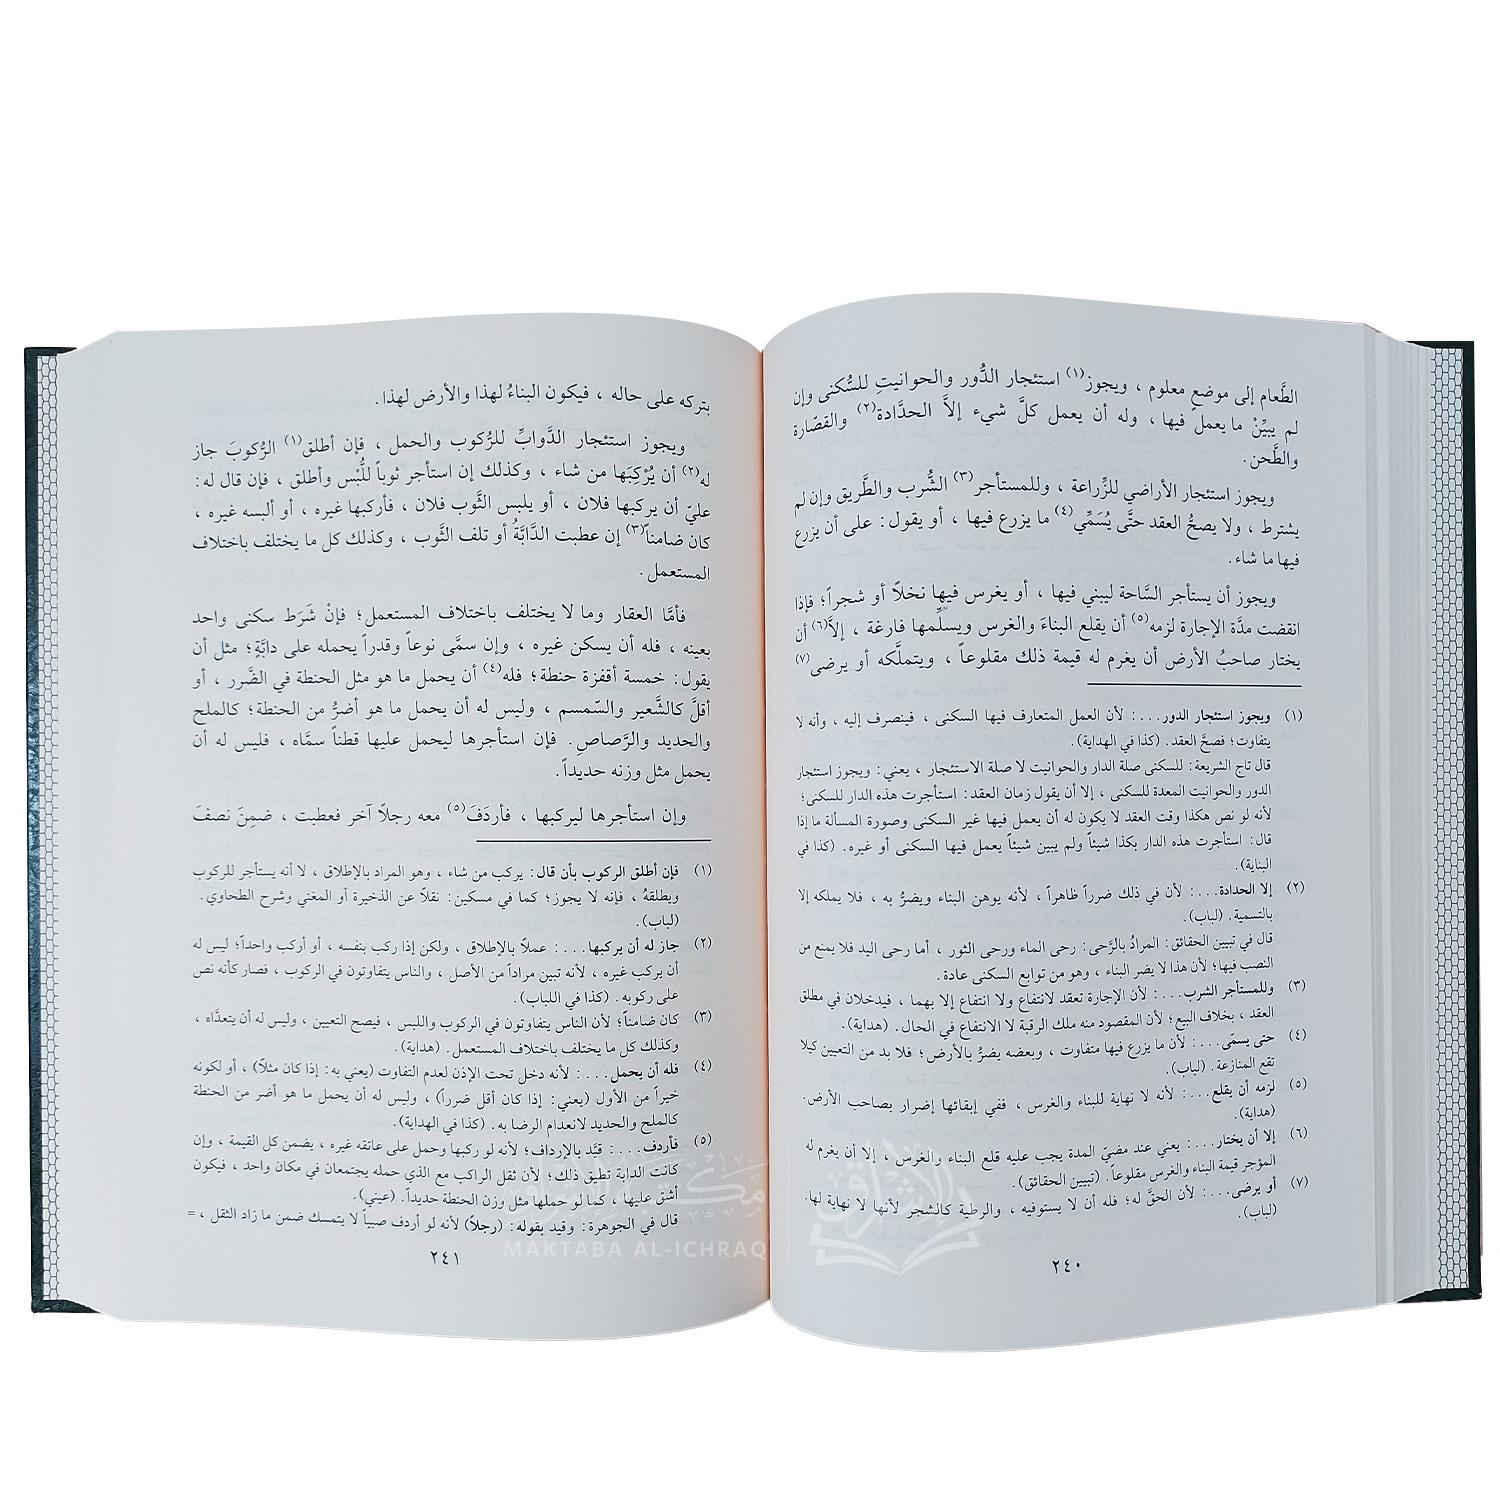 الطَّعام إلى موضعٍ معلوم ، ويجوز(١) استئجار الدُّور والحوانيتِ للسُّكنى وإن
لم يبيِّنْ ما يعمل فيها ، وله أن يعمل كلَّ شيء إلاَّ الحدَّادة(٢) والقصّارة
والطَّحن.
ويجوز استئجار الأراضي للزِّراعة ، وللمستأجر(٣) الشُّرب والطَّريق وإن لم
يشترط ، ولا يصحُّ العقد حتَّى يُسَمِّي(٤) ما يزرع فيها ، أو يقول: على أن يزرع
فيها ما شاء.
ويجوز أن يستأجر السَّاحة ليبني فيها ، أو يغرس فيها نخلاً أو شجراً؛ فإذا
انقضت مدَّة الإجارة لزمه(٥) أن يقلع البناءَ والغرس ويسلِّمها فارغة ، إلاَّ(٦) أن
يختار صاحبُ الأرض أن يغرم له قيمة ذلك مقلوعاً ، ويتملَّكه أو يرضى(٧)
(١) ويجوز استئجار الدور...: لأن العمل المتعارف فيها السكنى ، فينصرف إليه ، وأنه لا
يتفاوت؛ فصحَّ العقد. (كذا في الهداية).
قال تاج الشريعة: للسكنى صلة الدار والحوانيت لا صلة الاستئجار ، يعني: ويجوز استئجار
الدور والحوانيت المعدة للسكنى ، إلا أن يقول زمان العقد: استأجرت هذه الدار للسكنى؛
لأنه لو نص هكذا وقت العقد لا يكون له أن يعمل فيها غير السكنى وصورة المسألة ما إذا
قال: استأجرت هذه الدار بكذا شيئاً ولم يبين شيئاً يعمل فيها السكنى أو غيره. (كذا في
البناية).
(٢) إلا الحدادة...: لأن في ذلك ضرراً ظاهراً ، لأنه يوهن البناء ويضرُّ به ، فلا يملكه إلا
بالتسمية. (لباب).
قال في تبيين الحقائق: المرادُ بالرَّحى: رحى الماء ورحى الثور ، أما رحى اليد فلا يمنع من
النصب فيها؛ لأن هذا لا يضر البناء ، وهو من توابع السكنى عادة.
(٣) وللمستأجر الشرب...: لأن الإجارة تعقد لانتفاع ولا انتفاع إلا بهما ، فيدخلان في مطلق
العقد ، بخلاف البيع؛ لأن المقصود منه ملك الرقبة لا الانتفاع في الحال. (هداية).
(٤) حتى يسمّى...: لأن ما يزرع فيها متفاوت ، وبعضه يضرُّ بالأرض؛ فلا بد من التعيين كيلا
تقع المنازعة. (لباب).
(٥) لزمه أن يقلع...: لأنه لا نهاية للبناء والغرس ، ففي إبقائها إضرار بصاحب الأرض.
(هداية).
(٦) إلا أن يختار...: يعني عند مضيّ المدة يجب عليه قلع البناء والغرس ، إلا أن يغرم له
المؤجر قيمة البناء والغرس مقلوعاً. (تبيين الحقائق).
(٧) أو يرضى...: لأن الحقَّ له؛ فله أن لا يستوفيه ، والرطبة كالشجر لأنها لا نهاية لها.
(لباب).
٢٤٠
بتركه على حاله ، فيكون البناءُ لهذا والأرض لهذا.
ويجوز استئجار الدَّوابِّ للرُّكوب والحمل ، فإن أطلق(١) الرُّكوبَ جاز
له(٢) أن يُرْكِبَها من شاء ، وكذلك إن استأجر ثوباً للُّبْس وأطلق ، فإن قال له:
عليّ أن يركبها فلان ، أو يلبس الثَّوب فلان ، فأركبها غيره ، أو ألبسه غيره ،
كان ضامناً(٣) إن عطبت الدَّابَّةُ أو تلف الثَّوب ، وكذلك كل ما يختلف باختلاف
المستعمل.
فأمَّا العقار وما لا يختلف باختلاف المستعمل؛ فإنْ شَرَط سكنى واحد
بعينه ، فله أن يسكن غيره ، وإن سمَّى نوعاً وقدراً يحمله على دابَّةٍ؛ مثل أن
يقول: خمسة أقفزة حنطة؛ فله(٤) أن يحمل ما هو مثل الحنطة في الضَّرر ، أو
أقلَّ كالشَّعير والسّمسم ، وليس له أن يحمل ما هو أضرُّ من الحنطة؛ كالملح
والحديد والرَّصاصِ. فإن استأجرها ليحمل عليها قطناً سمَّاه ، فليس له أن
يحمل مثل وزنه حديداً.
وإن استأجرها ليركبها ، فأردَفَ(٥) معه رجلاً آخر فعطبت ، ضمِنَ نصفَ
(١) فإن أطلق الركوب بأن قال: يركب من شاء ، وهو المراد بالإطلاق ، لا أنه يستأجر للركوب
ويطلقهُ ، فإنه لا يجوز؛ كما في مسكين: نقلاً عن الذخيرة أو المغني وشرح الطحاوي.
(لباب).
(٢) جاز له أن يركبها...: عملاً بالإطلاق ، ولكن إذا ركب بنفسه ، أو أركب واحداً؛ ليس له
أن يركب غيره ، لأنه تبين مراداً من الأصل ، والناس يتفاوتون في الركوب ، فصار كأنه نص
على ركوبه. (كذا في اللباب).
(٣) كان ضامناً؛ لأن الناس يتفاوتون في الركوب واللبس ، فيصح التعيين ، وليس له أن يتعدَّاه ،
وكذلك كل ما يختلف باختلاف المستعمل. (هداية).
(٤) فله أن يحمل...: لأنه دخل تحت الإذن لعدم التفاوت (يعني به: إذا كان مثلاً) ، أو لكونه
خيراً من الأول (يعني: إذا كان أقل ضرراً) ، وليس له أن يحمل ما هو أضر من الحنطة
كالملح والحديد لانعدام الرضا به. (كذا في الهداية).
(٥) فأردف...: قيَّد بالإرداف؛ لأنه لو ركبها وحمل على عاتقه غيره ، يضمن كل القيمة ، وإن
كانت الدابة تطيق ذلك؛ لأن ثقل الراكب مع الذي حمله يجتمعان في مكان واحد ، فيكون
أشق عليها ، كما لو حملها مثل وزن الحنطة حديداً. (عيني).
قال في الجوهرة: وقيد بقوله: (رجلاً) لأنه لو أردف صبياً لا يتمسك ضمن ما زاد الثقل ، =
٢٤١
MAKTABA AL-ICHRAQ